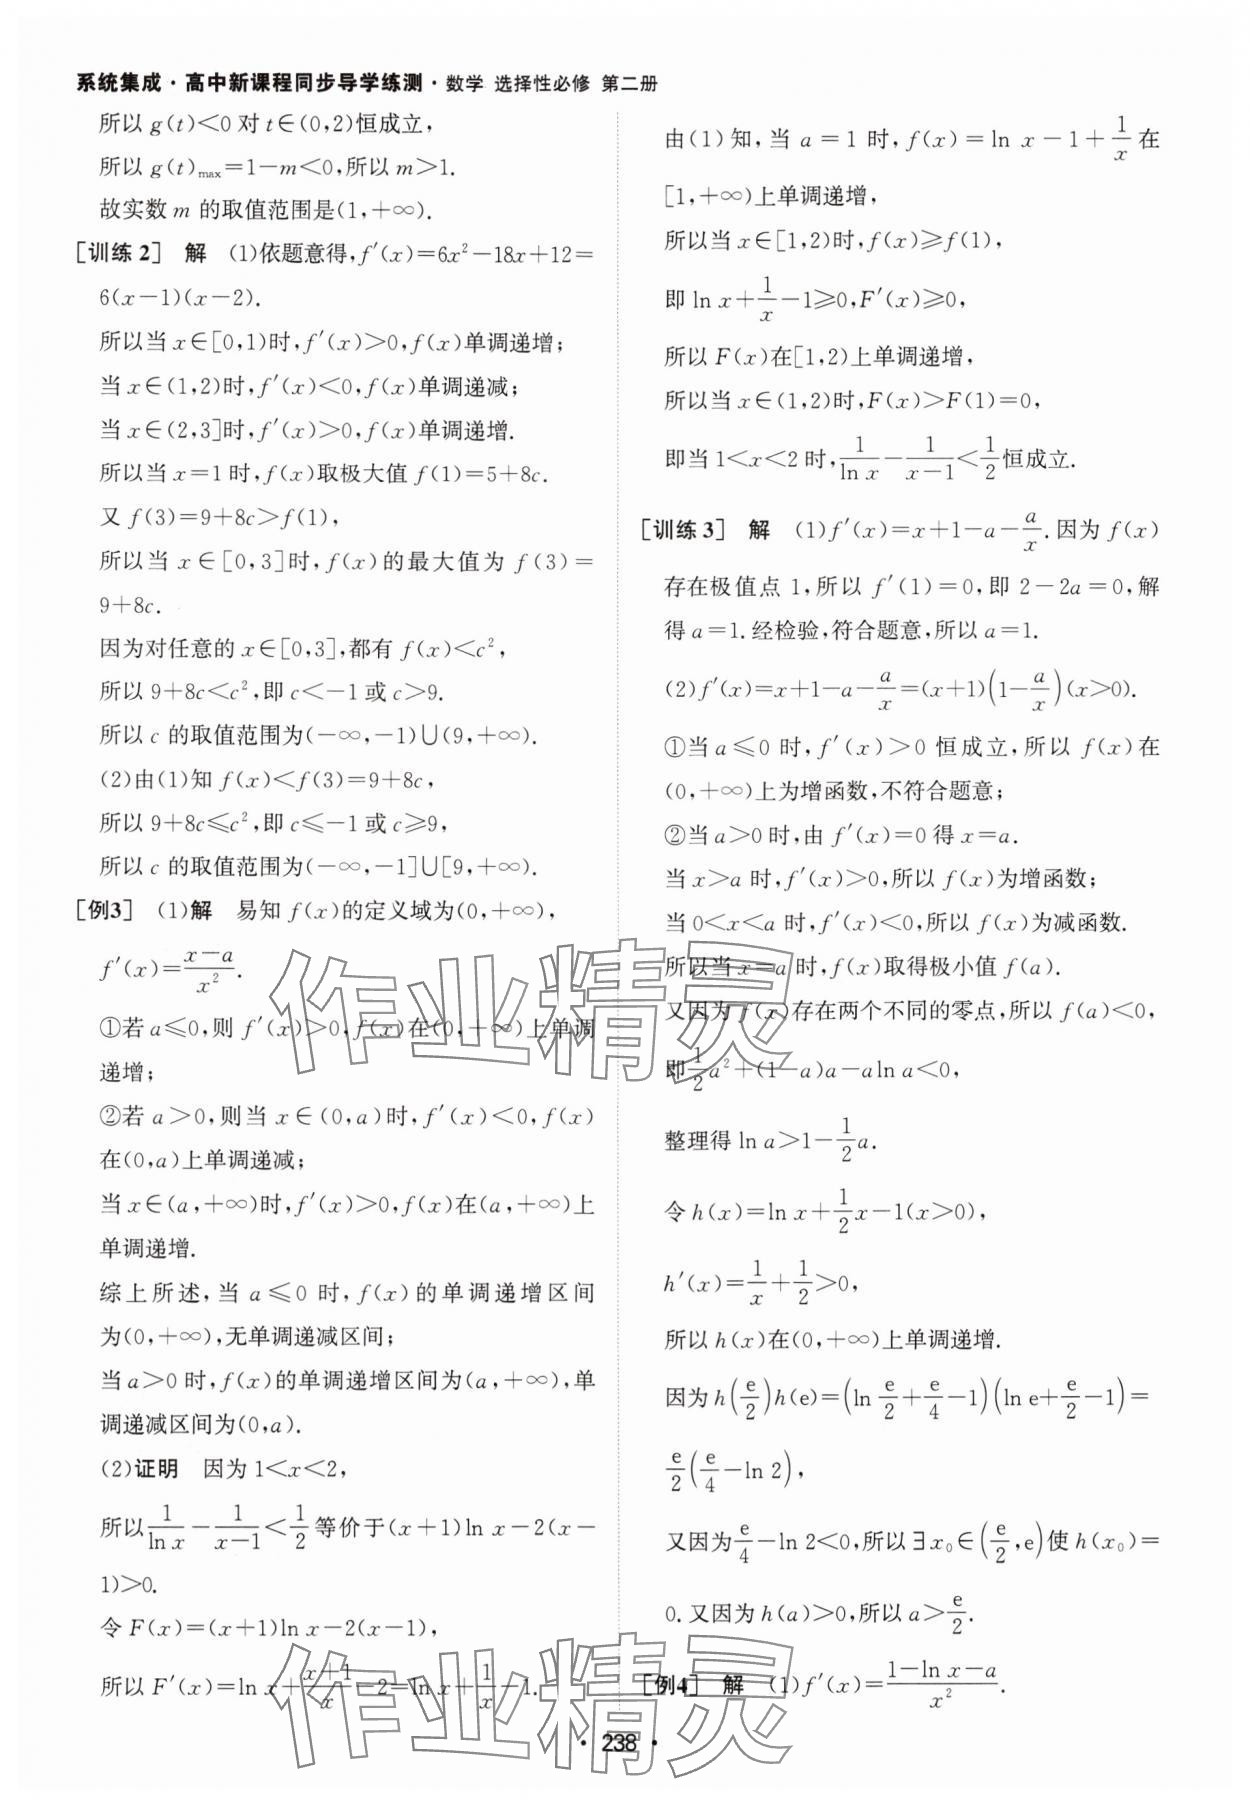 系统集成·高中新课程同步导学练测·数学 选择性必修 第二册
所以 g(t)<0 对 t∈(0,2)恒成立,
所以 g(t)max=1-m<0,所以 m>1.
故实数 m 的取值范围是(1,+∞).
[训练2] 解 (1)依题意得,f′(x)=6x²-18x+12=
6(x-1)(x-2).
所以当 x∈[0,1)时,f′(x)>0,f(x)单调递增;
当 x∈(1,2)时,f′(x)<0,f(x)单调递减;
当 x∈(2,3]时,f′(x)>0,f(x)单调递增.
所以当 x=1 时,f(x)取极大值 f(1)=5+8c.
又 f(3)=9+8c>f(1),
所以当 x∈[0,3]时,f(x)的最大值为 f(3)=
9+8c.
因为对任意的 x∈[0,3],都有 f(x)<c²,
所以 9+8c<c²,即 c<-1 或 c>9.
所以 c 的取值范围为(-∞,-1)∪(9,+∞).
(2)由(1)知 f(x)<f(3)=9+8c,
所以 9+8c≤c²,即 c≤-1 或 c≥9,
所以 c 的取值范围为(-∞,-1]∪[9,+∞).
[例3] (1)解 易知 f(x)的定义域为(0,+∞),
f′(x)=(x-a)/x².
①若 a≤0,则 f′(x)>0,f(x)在(0,+∞)上单调
递增;
②若 a>0,则当 x∈(0,a)时,f′(x)<0,f(x)
在(0,a)上单调递减;
当 x∈(a,+∞)时,f′(x)>0,f(x)在(a,+∞)上
单调递增.
综上所述,当 a≤0 时,f(x)的单调递增区间
为(0,+∞),无单调递减区间;
当 a>0 时,f(x)的单调递增区间为(a,+∞),单
调递减区间为(0,a).
(2)证明 因为 1<x<2,
所以 1/ln x - 1/(x-1) < 1/2 等价于(x+1)ln x-2(x-
1)>0.
令 F(x)=(x+1)ln x-2(x-1),
所以 F′(x)=ln x+(x+1)/x-2=ln x+1/x-1.
由(1)知,当 a=1 时,f(x)=ln x-1+1/x 在
[1,+∞)上单调递增,
所以当 x∈[1,2)时,f(x)≥f(1),
即 ln x+1/x-1≥0,F′(x)≥0,
所以 F(x)在[1,2)上单调递增,
所以当 x∈(1,2)时,F(x)>F(1)=0,
即当 1<x<2 时,1/ln x - 1/(x-1) < 1/2 恒成立.
[训练3] 解 (1)f′(x)=x+1-a-a/x.因为 f(x)
存在极值点 1,所以 f′(1)=0,即 2-2a=0,解
得 a=1.经检验,符合题意,所以 a=1.
(2)f′(x)=x+1-a-a/x=(x+1)(1-a/x)(x>0).
①当 a≤0 时,f′(x)>0 恒成立,所以 f(x)在
(0,+∞)上为增函数,不符合题意;
②当 a>0 时,由 f′(x)=0 得 x=a.
当 x>a 时,f′(x)>0,所以 f(x)为增函数;
当 0<x<a 时,f′(x)<0,所以 f(x)为减函数.
所以当 x=a 时,f(x)取得极小值 f(a).
又因为 f(x)存在两个不同的零点,所以 f(a)<0,
即 1/2 a²+(1-a)a-aln a<0,
整理得 ln a>1-1/2 a.
令 h(x)=ln x+1/2 x-1(x>0),
h′(x)=1/x+1/2>0,
所以 h(x)在(0,+∞)上单调递增.
因为 h(e/2)h(e)=(ln e/2+e/4-1)(ln e+e/2-1)=
e/2(e/4-ln 2),
又因为 e/4-ln 2<0,所以∃x₀∈(e/2,e)使 h(x₀)=
0.又因为 h(a)>0,所以 a>e/2.
[例4] 解 (1)f′(x)=(1-ln x-a)/x².
·238·
作业精灵
作业精灵